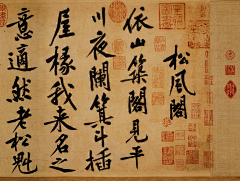 松風閣
依山築閣見平
川夜闌箕斗插
屋椽我來名之
意適然老松魁